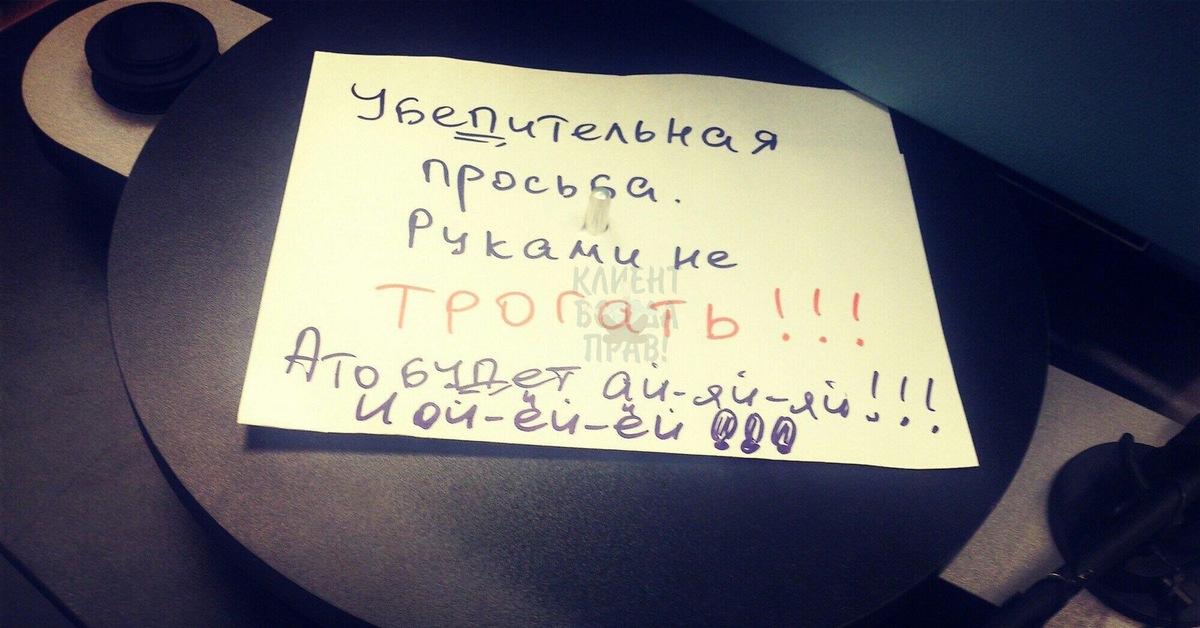 Убепительная
просьба.
Руками не
трогать!!!
Ато будет ай-яй-яй!!!
И ой-ёй-ёй !!!
КЛИЕНТ
ВСЕГДА
ПРАВ!